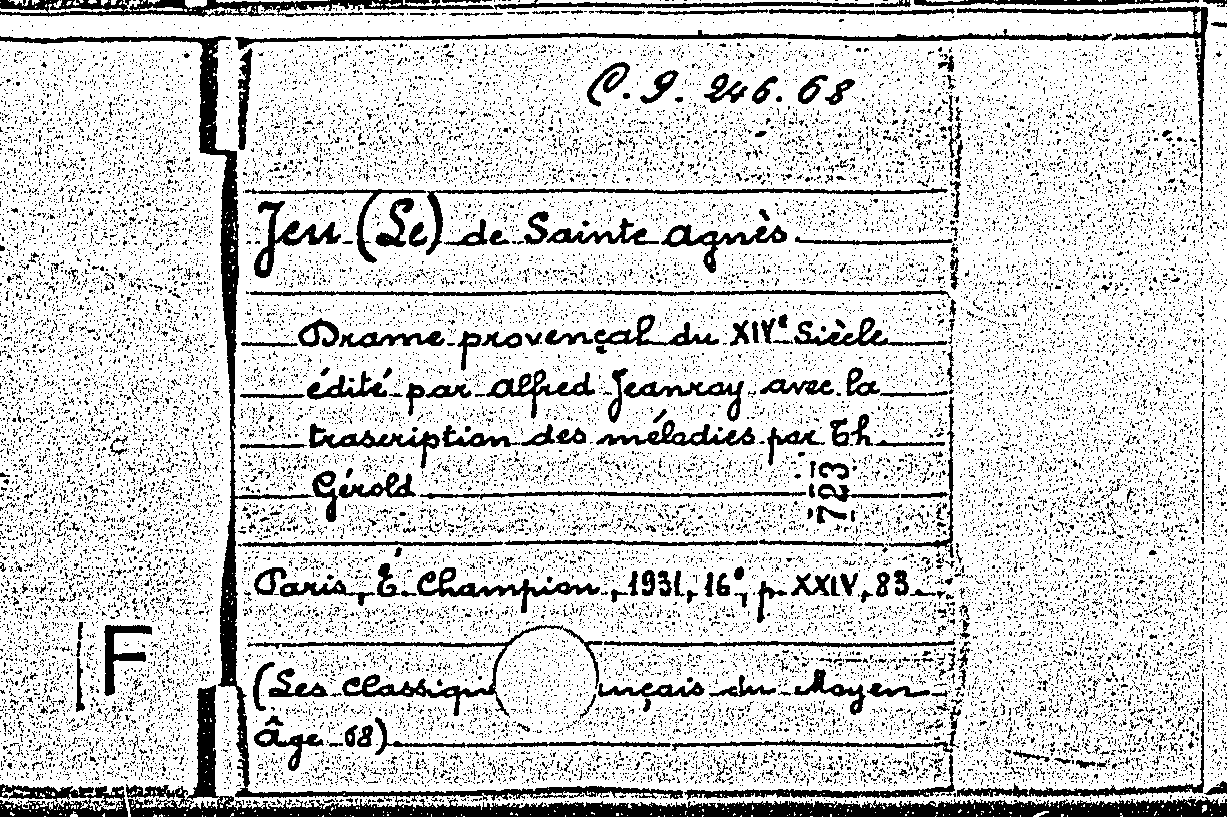 C.9.246.68
Jeu (Le) de Sainte Agnès.
Drame provençal du XIVe Siècle
édité par Alfred Jeanroy avec la
trascription des mélodies par Th
Gérold
723
Paris, É. Champion, 1931, 16°, p. XXIV, 83.
F
(Les classiqu unçais du Moyen
Âge 68).